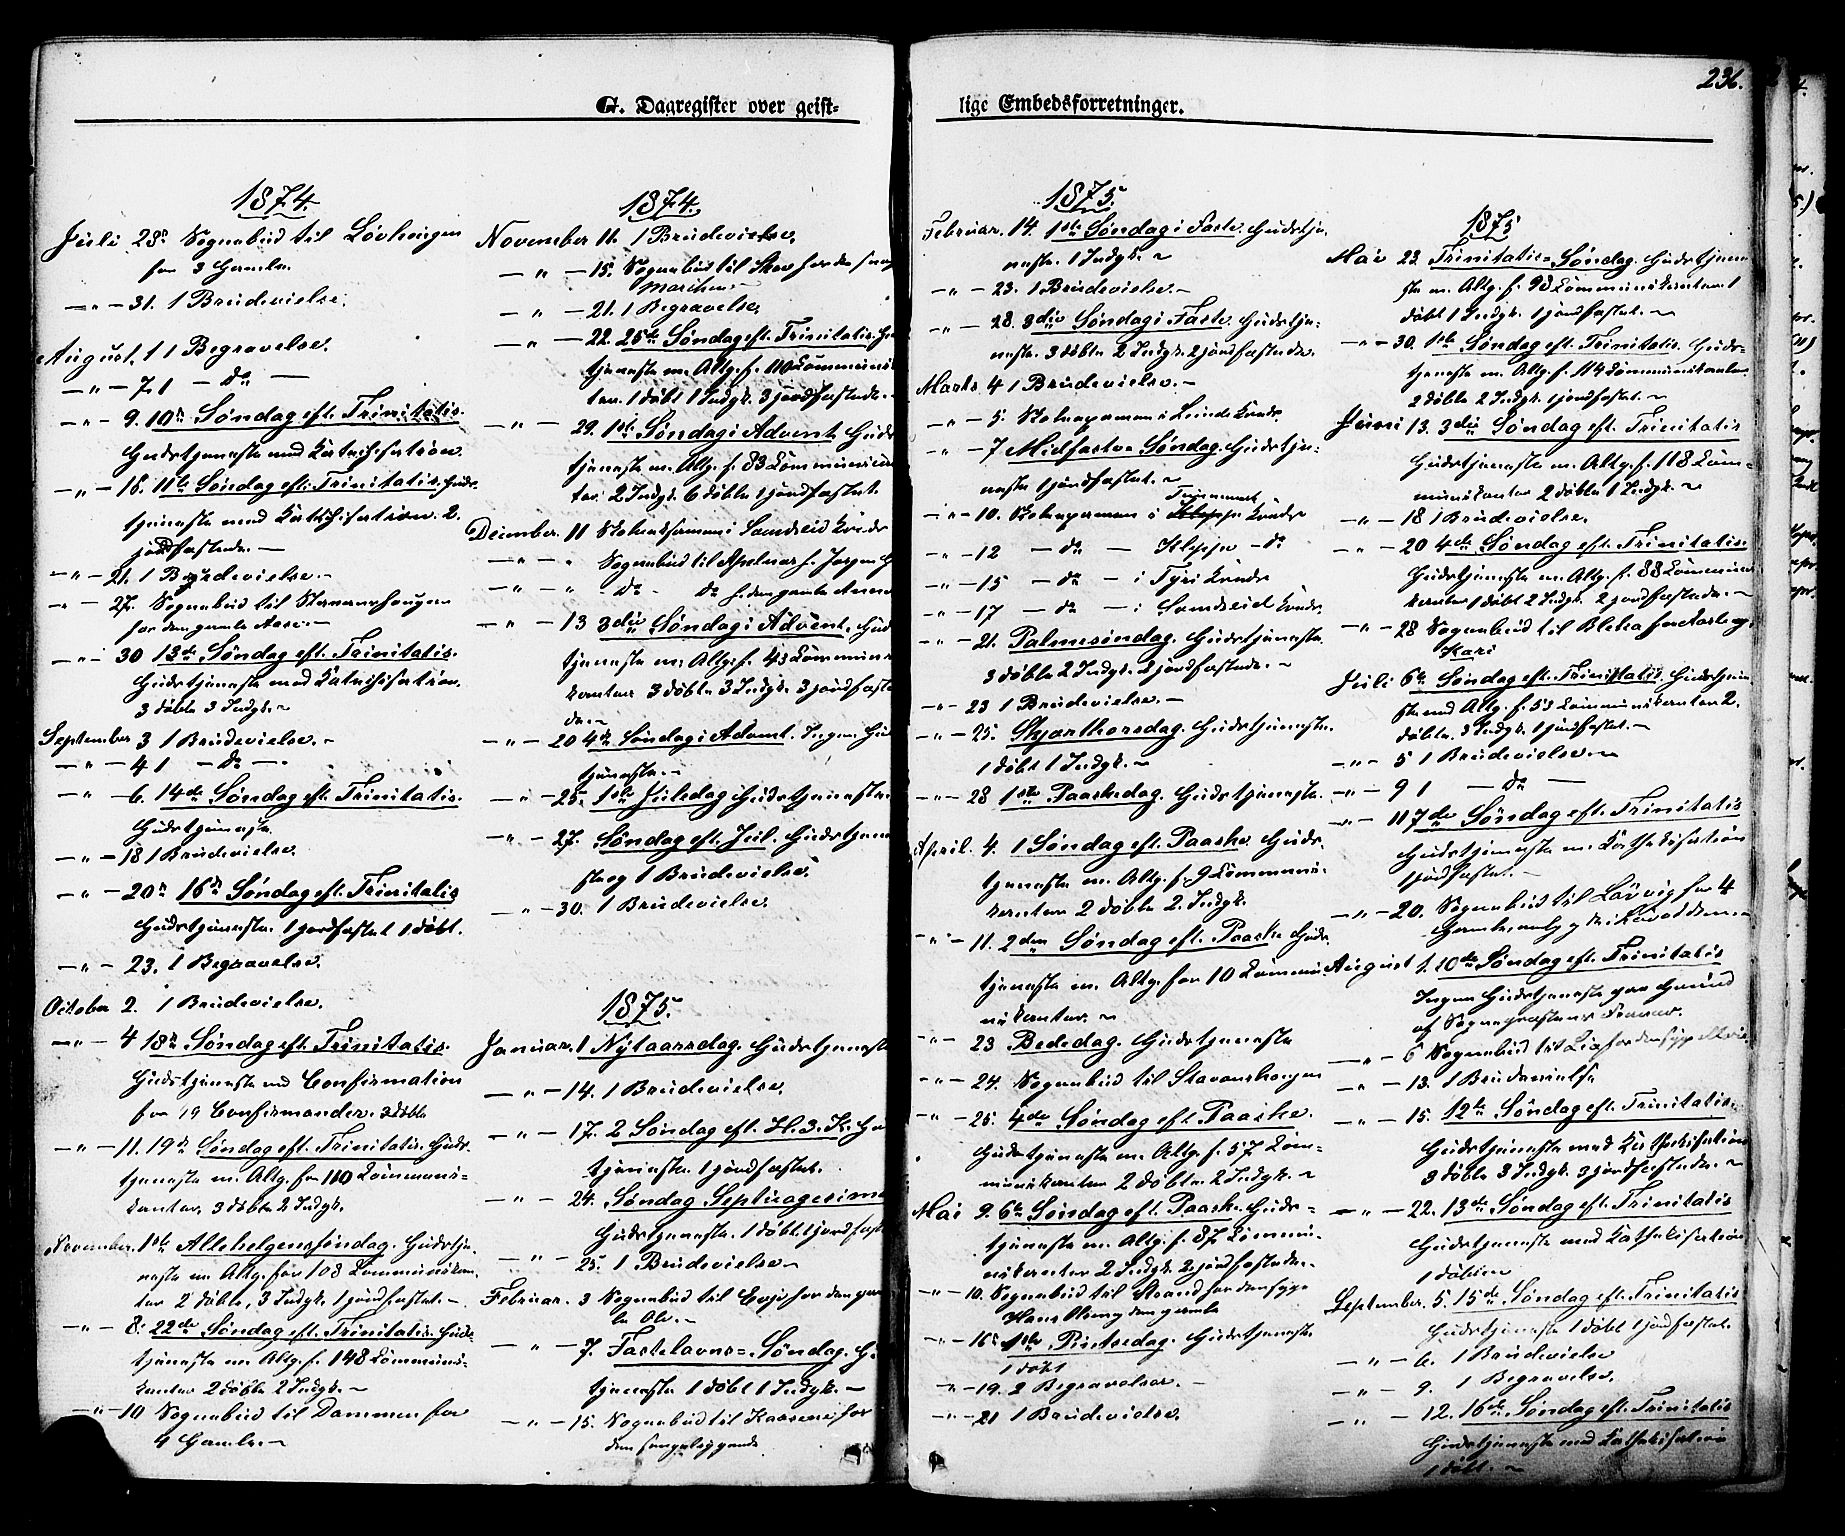 236.
G. Dagregister over geist-
lige Embedsforretninger.
1874.
Juli 28. Sognebud til
for 3 Gamle.
— " — 31. 1 Brudevielse.
August. 1 1 Begravelse.
— " — 7. 1 — do —
— " — 9. 10de Søndag eft. Trinitatis.
Gudstjeneste med Katechisation.
— " — 16. 11te Søndag eft. Trinitatis. Guds-
tjeneste med Katechisation. 2.
jordfæstede. —
— " — 21. 1 Brudevielse. —
— " — 27. Sognebud til
for den gamle
— " — 30 13de Søndag eft. Trinitatis.
Gudstjeneste med Katechisation.
3 døbte 3 Indgk. ~
September 3 1 Brudevielse. —
— " — 4 1 — do — .
— " — 6. 14de Søndag eft. Trinitatis.
Gudstjeneste
— " — 18 1 Brudevielse.
— " — 20de 16de Søndag eft. Trinitatis
Gudstjeneste. 1 jordfæstet 1 døbt.
— " — 23. 1 Begravelse.
October 2. 1 Brudevielse.
— " — 4 18de Søndag eft. Trinitatis.
Gudstjeneste med Confirmation
for 19 Confirmander. 3 døbte
— " — 11. 19de Søndag eft. Trinitatis. Guds-
tjeneste m. Altg. for 110 Kommuni-
kanter. 3 døbte 2 Indgk.
November. 1ste Allehelgenssøndag. Gudstje-
neste m. Altg. for 108 Kommunikan-
ter 2 døbte, 3 Indgk. 1 jordfæstet. —
— " — 8. 22de Søndag eft. Trinitatis. Guds-
tjeneste m. Altg. f. 148 Kommuni-
kanter 2 døbte 2 Indgk. —
— " — 10 Sognebud til Dammen for
4 Gamle. —
1874.
November 11. 1 Brudevielse.
— " — 15. Sognebud til
— " — 21. 1 Begravelse.
— " — 22. 25de Søndag eft. Trinitatis. Gu
tjeneste m. Altg. f. 110 Kommuni
ter. 1 døbt 1 Indgk. 3 jordfæstede. —
— " — 29. 1ste Søndag i Advent. Guds
tjeneste m. Altg. f. 83 Kommuni
ter. 2 Indgk. 6 døbte 1 jordfæstet.
December. 11 i Sandeid Kreds
— " — " Sognebud til
— " — " do . do
— " — 13 3die Søndag i Advent. Gud
tjeneste m. Altg. f. 43 Kommuni
kanter 3 døbte 3 Indgk. 3 jordfæste
de. ~
— " — 20 4de Søndag i Advent. Ingen Gud
tjeneste. —
— " — 25. 1ste Juledag Gudstjeneste
— " — 27. Søndag eft. Jul. Gudstjene
ste og 1 Brudevielse.
— " — 30. 1 Brudevielse.
1875.
Januar. 1 Nytaarsdag. Gudstjeneste
— " — 14. 1 Brudevielse.
— " — 17. 2 Søndag eft. H. 3. K. Gu
tjeneste. 1 jordfæstet.
— " — 24. Søndag Septuagesima
Gudstjeneste. 1 døbt 1 jordfæst
— " — 25. 1 Brudevielse —
Februar. 3 Sognebud til for den gam
le
— " — 7. Fastelavns= Søndag. G
tjeneste 1 døbt 1 Indgk. —
— " — 15. Sognebud til for
den sengeliggende
1875.
Februar. 14. 1ste Søndag i Faste. Gudstje-
neste. 1 Indgk. ~
— " — 23. 1 Brudevielse. —
— " — 28. 3die Søndag i Faste. Gudstje-
neste. 3 døbte 2 Indgk. 2 jordfæstede.
Marts 4 1 Brudevielse. —
— " — 5. i Kreds
— " — 7 Midfaste Søndag. Gudstje-
neste 1 jordfæstet. ~
— " — 10. i Kreds
— " — 12 — do — Kleppe — do
— " — 15 — do — i Kreds
— " — 17 — do — i Sandeid Kreds.
— " — 21. Palmesøndag. Gudstjeneste
3 døbte 2 Indgk. 2 jordfæstede. ~
— " — 23 1 Brudevielse. —
— " — 25. Skjærthorsdag. Gudstjeneste.
1 døbt 1 Indgk. ~
— " — 28 1ste Paaskedag. Gudstjeneste.
April. 4. 1 Søndag eft. Paaske Guds-
tjeneste m. Altg. f. 9 Kommuni-
kanter 2 døbte 2. Indgk.
— " — 11. 2den Søndag eft. Paaske Guds-
tjeneste m. Altg. for 10 Kommu-
nikanter. ~
— " — 23 Bededag. Gudstjeneste
— " — 24. Sognebud til
— " — 25. 4de Søndag eft. Paaske.
Gudstjeneste m. Altg. f. 57 Kom-
munikanter 2 døbte. 2 Indgk. ~
Mai 9. 6te Søndag eft. Paaske. Guds-
tjeneste m. Altg. f. 87 Kommu-
nikanter 2 Indgk. 2 jordfæstede.
— " — 10. Sognebud til Strand for den syge
Hans
— " — 16 1ste Pintsedag. Gudstjeneste.
1 døbt
— " — 19. 2 Begravelser. —
— " — 21 1 Brudevielse.
1875
Mai 23. Trinitatis= Søndag. Gudstjene-
ste m. Altg. f. 93 Kommunikanter. 1
døbt 1 Indgk. 1 jordfæstet. ~
— " — 30. 1ste Søndag eft. Trinitatis. Guds-
tjeneste m. Altg. f. 114 Kommunikanter
2 døbte 2 Indgk. 1 jordfæstet. ~
Juni 13. 3die Søndag eft. Trinitatis
Gudstjeneste m. Altg. f. 118 Kom-
munikanter 2 døbte 1 Indgk. ~
— " — 18 1 Brudevielse.
— " — 20 4de Søndag eft. Trinitatis.
Gudstjeneste m. Altg. f. 88 Kommuni
kanter 1 døbt 2 Indgk. 2 jordfæstede. ~
— " — 28 Sognebud til
Kari
Juli 6te Søndag eft. Trinitatis. Gudstjene-
ste med Altg. f. 53 Kommunikanter 2.
døbte. 3 Indgk. 1 jordfæstet. ~
— " — 5 1 Brudevielse. ~
— " — 9 1 — do —
— " — 11 7de Søndag eft. Trinitatis
Gudstjeneste m. Kathekisation
1 jordfæstet. —
— " — 20. Sognebud til for 4
Gamle,
August 1. 10de Søndag eft. Trinitatis
Ingen Gudstjeneste paa Grund
af Sognepræstens
— " — 6 Sognebud til for den syge
— " — 13. 1 Brudevielse
— " — 15. 12te Søndag eft. Trinitatis.
Gudstjeneste med Kathekisation
3 døbte 3 Indgk. 3 jordfæstede. ~
— " — 22. 13de Søndag eft. Trinitatis
Gudstjeneste med Kathekisation
1 døbt
September. 5. 15de Søndag eft. Trinitatis
Gudstjeneste 1 døbt 1 jordfæstet.
— " — 6. 1 Brudevielse
— " — 9. 1 Begravelse.
— " — 12. 16de Søndag eft. Trinitatis
Gudstjeneste med Kathekisation
1 døbt. ~